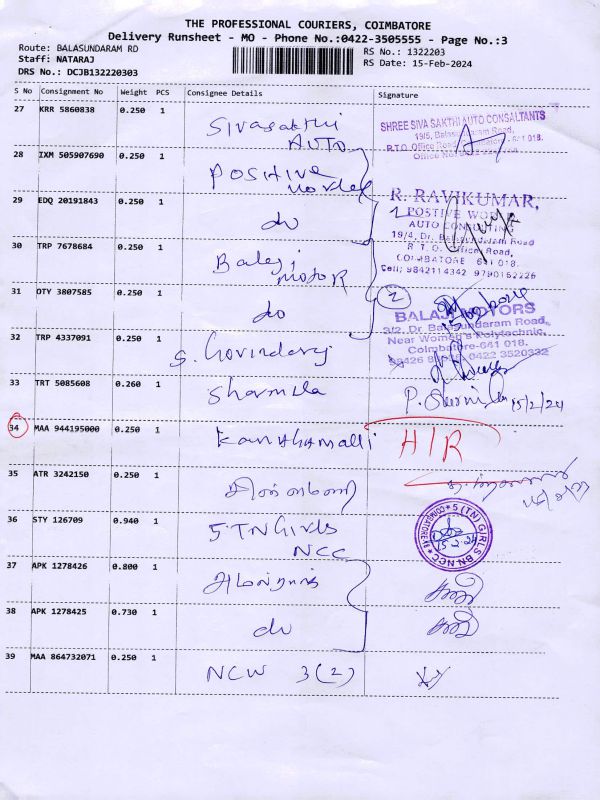 THE PROFESSIONAL COURIERS, COIMBATORE
Delivery Runsheet - MO - Phone No.:0422-3505555 - Page No.:3
Route: BALASUNDARAM RD
RS No.: 1322203
Staff: NATARAJ
RS Date: 15-Feb-2024
DRS No.: DCJB132220303
S No Consignment No Weight PCS Consignee Details Signature
27 KRR 5860838 0.250 1
Sivasakthi
AUTO
SHREE SIVA SAKTHI AUTO CONSALTANTS
19/5, Balasundaram Road,
R.T.O. Office Road, Coimbatore - 641 018.
28 IXM 505907690 0.250 1
Positive
29 EDQ 20191843 0.250 1
do
R. RAVIKUMAR,
POSTIVE WORLD
AUTO CONSULTING
19/4, Dr. Balasundaram Road
R. T. O. Office Road,
COIMBATORE 641 018.
Cell; 9842114342 9790162226
30 TRP 7678684 0.250 1
Balaji
motor
31 OTY 3807585 0.250 1
do
2
BALAJI MOTORS
3/2, Dr. Balasundaram Road,
Near Women's Polytechnic,
Coimbatore-641 018.
0422 3520332
32 TRP 4337091 0.250 1
G. Govindaraj
33 TRT 5085608 0.260 1
Sharmila
P. Sharmila 15/2/24
34 MAA 944195000 0.250 1
H/R
35 ATR 3242150 0.250 1
36 STY 126709 0.940 1
5 TN Girls
NCC
5 (TN) GIRLS BN NCC
COIMBATORE
15.2.24
37 APK 1278426 0.800 1
38 APK 1278425 0.730 1
do
39 MAA 864732071 0.250 1
NCW 3(2)